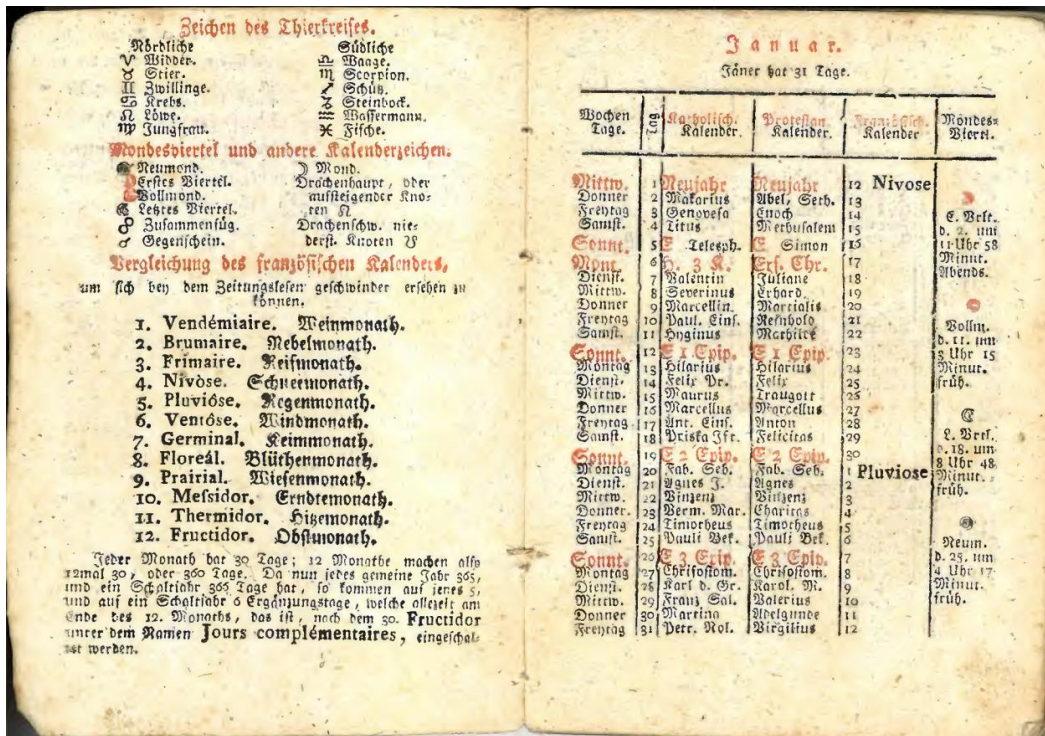 Zeichen des Thierkreises.
Nördliche Südliche
♈ Widder. ♎ Waage.
♉ Stier. ♏ Scorpion.
♊ Zwillinge. ♐ Schütz.
♋ Krebs. ♑ Steinbock.
♌ Löwe. ♒ Wassermann.
♍ Jungfrau. ♓ Fische.
Mondesviertel und andere Kalenderzeichen.
Neumond. ☽ Mond.
Erstes Viertel. Drachenhaupt, oder
Vollmond. aufsteigender Kno-
Letztes Viertel. ten ☊
☍ Zusammenfüg. Drachenschw. nie-
♂ Gegenschein. derst. Knoten ☋
Vergleichung des französischen Kalenders,
um sich bey dem Zeitungslesen geschwinder ersehen zu
können.
1. Vendémiaire. Weinmonath.
2. Brumaire. Nebelmonath.
3. Frimaire. Reifmonath.
4. Nivòse. Schneemonath.
5. Pluvióse. Regenmonath.
6. Ventóse. Windmonath.
7. Germinal. Keimmonath.
8. Floreál. Blüthenmonath.
9. Prairial. Wiesenmonath.
10. Meſsidor. Erndtemonath.
11. Thermidor. Hitzemonath.
12. Fructidor. Obstmonath.
Jeder Monath hat 30 Tage; 12 Monathe machen also
12mal 30, oder 360 Tage. Da nun jedes gemeine Jahr 365,
und ein Schaltjahr 366 Tage hat, so kommen auf jenes 5,
und auf ein Schaltjahr 6 Ergänzungstage, welche allezeit am
Ende des 12. Monaths, das ist, nach dem 30. Fructidor
unter dem Namen Jours complémentaires, eingeschal-
tet werden.
Januar.
Jäner hat 31 Tage.
Wochen Tage. Tag Katholisch. Kalender. Protestan. Kalender. Französisch. Kalender Mondes-Viertl.
Mittw. 1 Neujahr Neujahr 12 Nivose
Donner 2 Makarius Abel, Seth. 13
Freytag 3 Genovefa Enoch 14
Samst. 4 Titus Methusalem 15
Sonnt. 5 E Telesph. E Simon 16
Mont 6 H. 3 K. Ers. Chr. 17
Dienst. 7 Valentin Juliane 18
Mittw. 8 Severinus Erhard 19
Donner 9 Marcellin. Martialis 20
Freytag 10 Paul. Eins. Reinhold 21
Samst. 11 Hyginus Mathilde 22
Sonnt. 12 E 1 Epip. E 1 Epip. 23
Montag 13 Hilarius Hilarius 24
Dienst. 14 Felix Pr. Felix 25
Mittw. 15 Maurus Traugott 26
Donner 16 Marcellus Marcellus 27
Freytag 17 Ant. Eins. Anton 28
Samst. 18 Priska Jfr. Felicitas 29
Sonnt. 19 E 2 Epip. E 2 Epip. 30
Montag 20 Fab. Seb. Fab. Seb. 1 Pluviose
Dienst. 21 Agnes J. Agnes 2
Mittw. 22 Vinzenz Vinzenz 3
Donner. 23 Verm. Mar. Charitas 4
Freytag 24 Timotheus Timotheus 5
Samst. 25 Pauli Bek. Pauli Bek. 6
Sonnt. 26 E 3 Epip. E 3 Epip. 7
Montag 27 Chrisostom. Chrisostom. 8
Dienst. 28 Karl d. Gr. Karol. M. 9
Mittw. 29 Franz Sal. Valerius 10
Donner 30 Martina Adelgunde 11
Freytag 31 Petr. Nol. Virgilius 12
E. Vrlt.
d. 2. um
11 Uhr 58
Minut.
Abends.
Vollm.
d. 11. um
3 Uhr 15
Minut.
früh.
☾
L. Vrtl.
d. 18. um
8 Uhr 48
Minut.
früh.
Neum.
d. 25. um
4 Uhr 17
Minut.
früh.